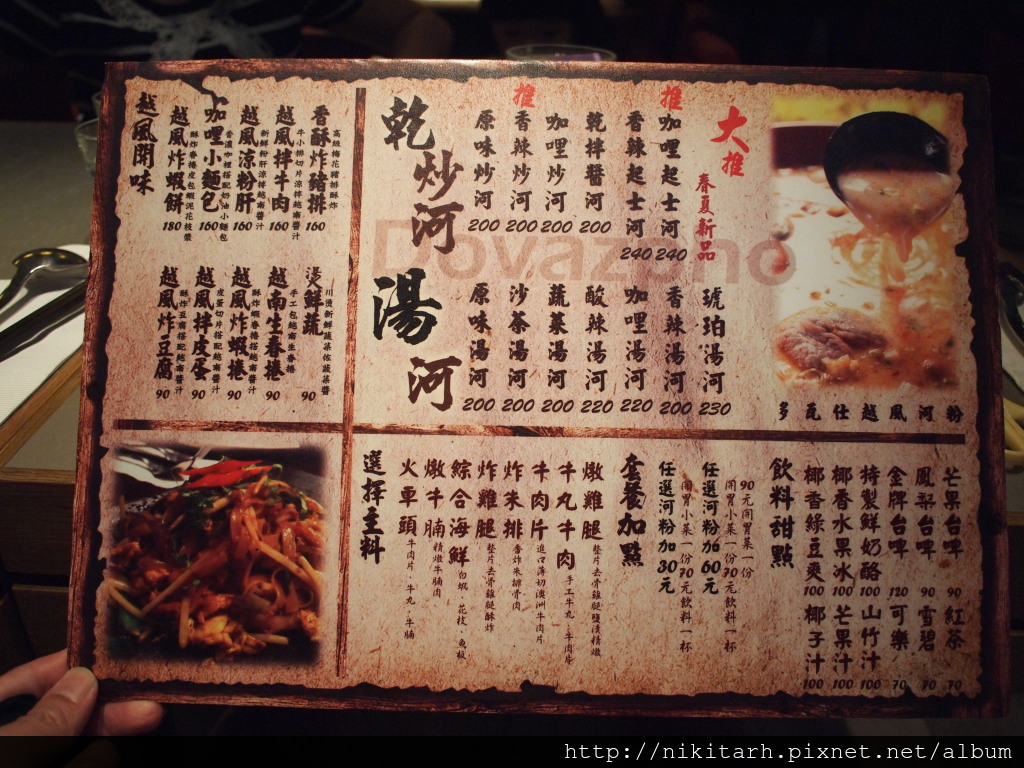 大推
春夏新品
多瓦仕越風河粉
乾炒河
推
咖哩起士河 240
香辣起士河 240
乾拌醬河 200
咖哩炒河 200
推
香辣炒河 200
原味炒河 200
湯河
琥珀湯河 230
香辣湯河 200
咖哩湯河 220
酸辣湯河 220
蔬菜湯河 200
沙茶湯河 200
原味湯河 200
Dovazono
越風開味
香酥炸豬排 160
高級梅花豬排酥炸
越風拌牛肉 160
牛小排切片涼拌越南醬汁
越風涼粉肝 160
新鮮粉肝涼拌越南醬汁
咖哩小麵包 160
香濃咖哩搭配奶油小麵包
越風炸蝦餅 180
酥炸春捲皮包蝦泥花枝漿
燙鮮蔬 90
川燙新鮮蔬菜佐蔬菜醬
越南生春捲 90
手工包越南生春捲
越風炸蝦捲 90
酥炸蝦春捲搭配越南醬汁
越風拌皮蛋 90
皮蛋切片搭配越南醬汁
越風炸豆腐 90
酥炸豆腐搭配越南醬汁
選擇主料
火車頭 牛肉片、牛丸、牛腩
燉牛腩 精燉牛腩肉
綜合海鮮 白蝦、花枝、魚板
炸雞腿 整片去骨雞腿酥炸
炸朱排 香炸朱排骨肉
牛肉片 進口薄切澳洲牛肉片
牛丸牛肉 手工牛丸、牛肉片
燉雞腿 整片去骨雞腿鹽漬精燉
套餐加點
任選河粉加30元
開胃小菜一份70元飲料一杯
任選河粉加60元
開胃小菜一份70元飲料一杯
90元開胃菜一份
飲料甜點
芒果台啤 90
鳳梨台啤 90
金牌台啤 120
特製鮮奶酪 100
椰香水果冰 100
椰香綠豆爽 100
紅茶 70
雪碧 70
可樂 70
山竹汁 100
芒果汁 100
椰子汁 100
http://nikitarh.pixnet.net/album